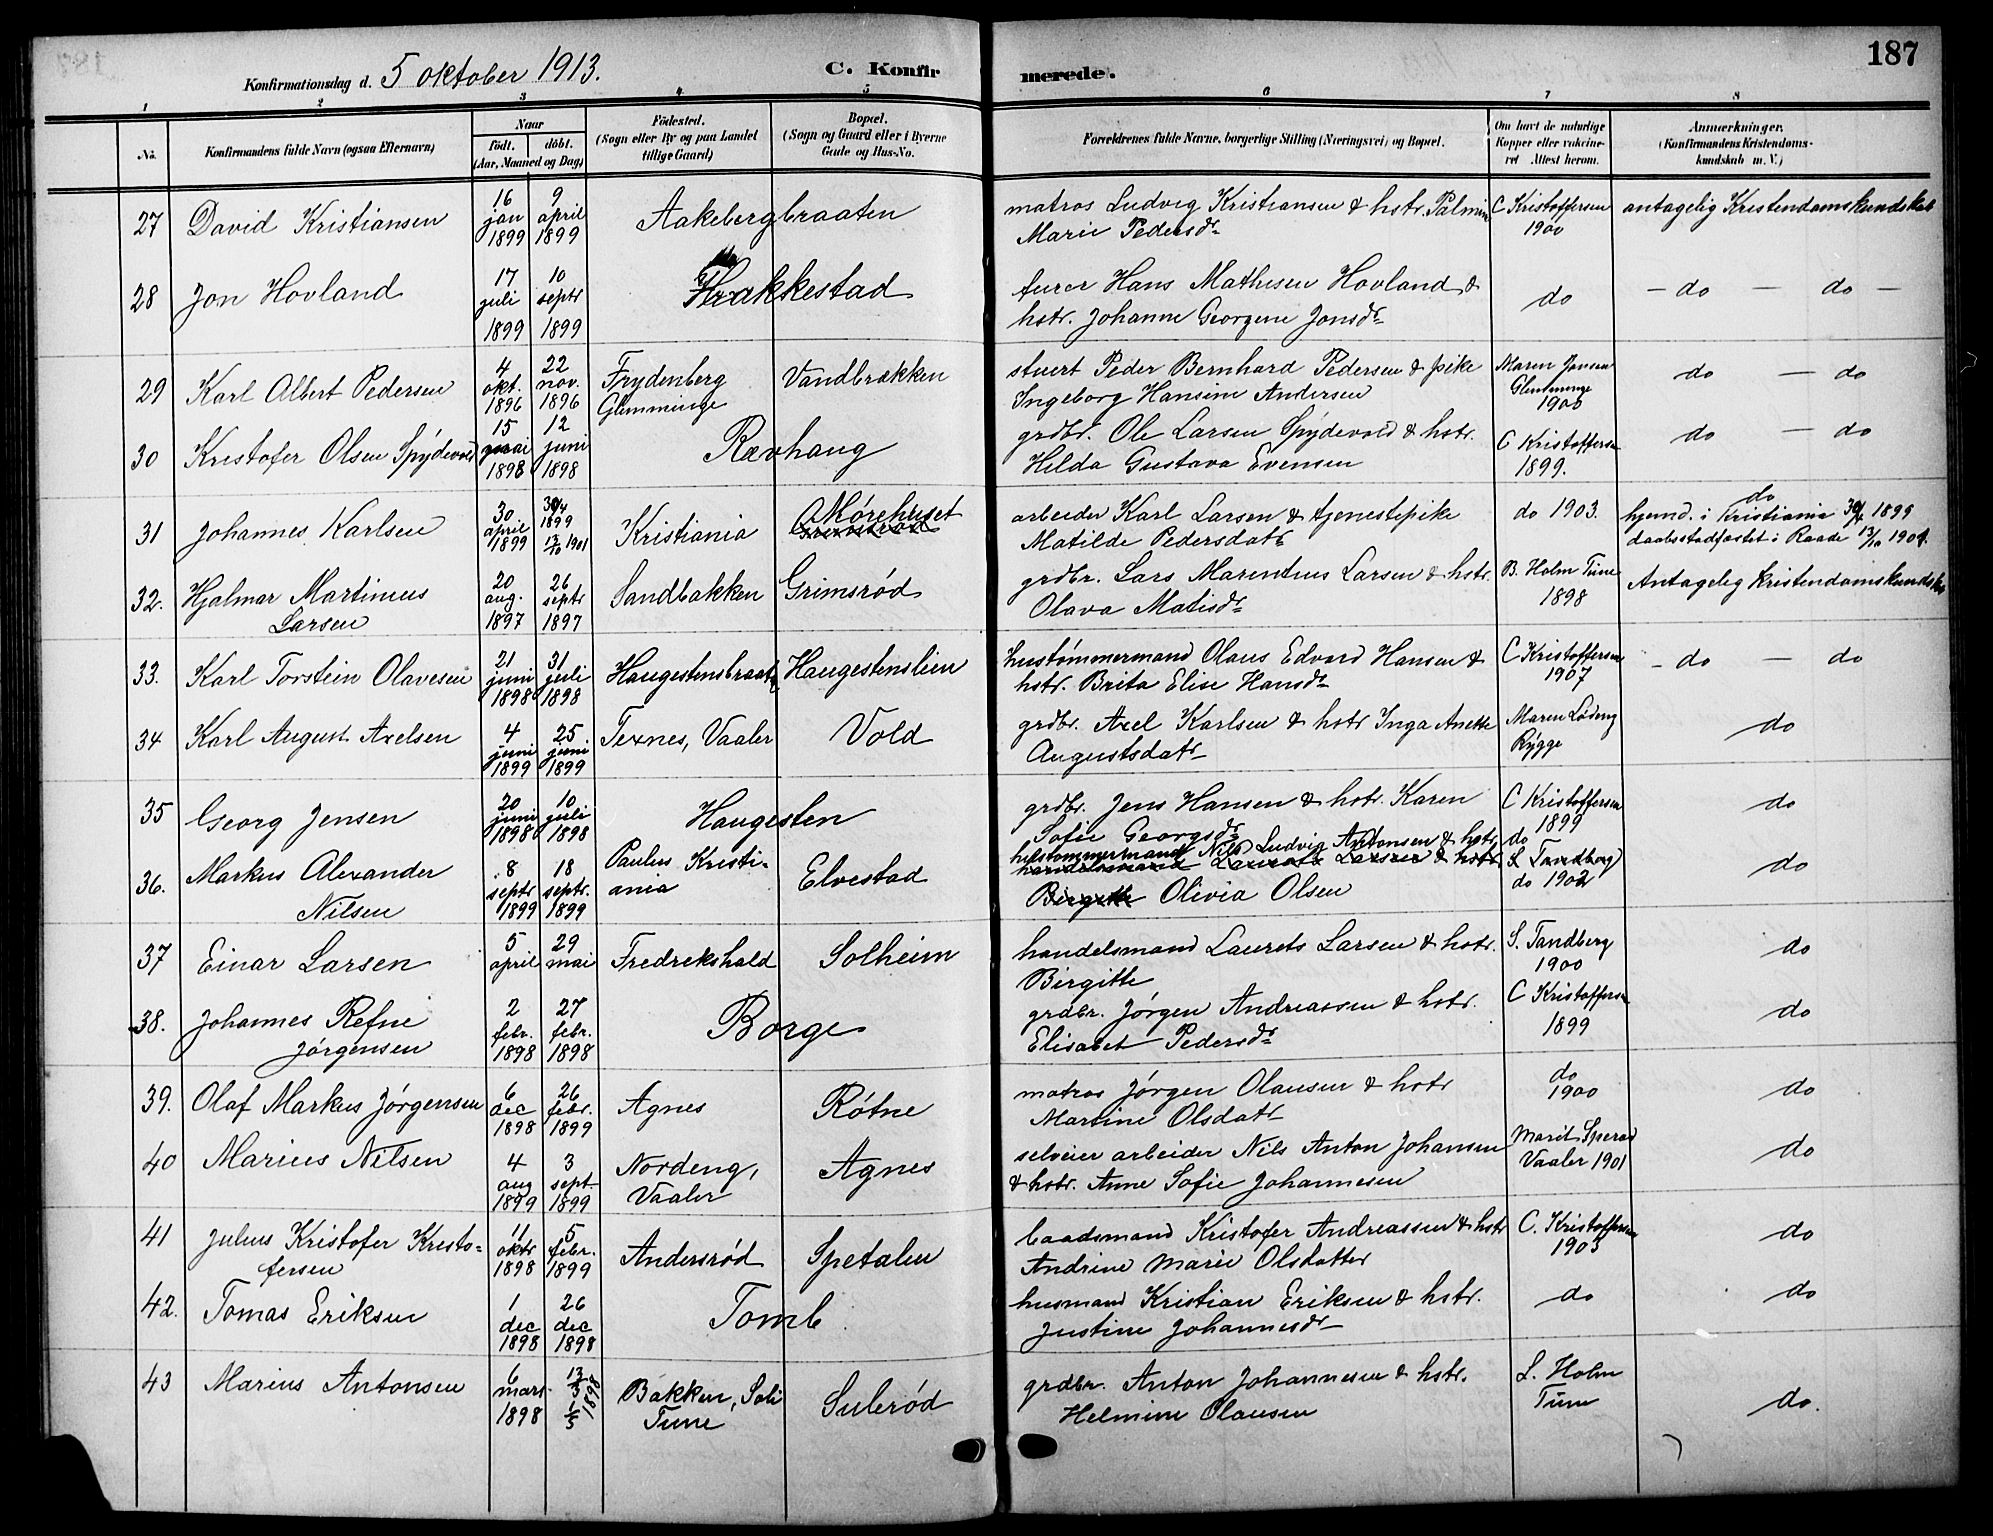 187
Konfirmationsdag d. 5 oktober 1913. C. Konfirmerede.
1 2 3 4 5 6 7 8
No. Konfirmandens fulde Navn (ogsaa Efternavn) Naar født. døbt. (Aar, Maaned og Dag) Fødested. (Sogn eller By og paa Landet tillige Gaard) Bopæl. (Sogn og Gaard eller i Byerne Gade og Hus-No. Forældrenes fulde Navne, borgerlige Stilling (Næringsvei) og Bopæl. Om havt de naturlige Kopper eller vakcineret Attest herom. Anmærkninger. (Konfirmandens Kristendomskundskab m. V.)
27 David Kristiansen 16 jan 1899 9 april 1899 Aakebergbraaten matros Ludvig Kristiansen & hstr. Palmine Marie Pedersdr C Kristoffersen 1900 antagelig Kristendomskundskab
28 Jon Hovland 17 juli 1899 10 septr 1899 Hrakkestad furer Hans Mathisen Hovland & hstr. Johanne Georgine Jonsdr do — do — do —
29 Karl Albert Pedersen 4 okt. 1896 22 nov. 1896 Frydenberg Glemminge Vandbrækken stuert Peder Bernhard Pedersen & pike Ingeborg Hansine Andersen Maren Jensen Glemminge 1900 do — do
30 Kristofer Olsen Spydevold 15 mai 1898 12 juni 1898 Ravhaug grdbr. Ole Larsen Spydevold & hstr. Hilda Gustava Evensen C Kristoffersen 1899. do — do
31 Johannes Karlsen 30 april 1899 30/4 1899 13/10 1901 Kristiania Mørehuset arbeider Karl Larsen & tjenestepike Matilde Pedersdatr do 1903. do hjemd. i Kristiania 30/4 1899 daabsstadfæstet i Raade 13/10 1901.
32. Hjalmar Martinius Larsen 20 aug. 1897 26 septr 1897 Sandbakken Grimsrød grdbr. Lars Marentius Larsen & hstr. Olava Matisdr B. Holm Tune 1898 Antagelig Kristendomskundskab
33. Karl Torstein Olavesen 21 juni 1898 31 juli 1898 Haugestensbraatn Haugestenslien hustømmermand Olaus Edvard Hansen & hstr. Brita Elise Hansdr C Kristoffersen 1907 — do — do
34 Karl August Axelsen 4 juni 1899 25 juni 1899 Texnes, Vaaler Vold grdbr. Axel Karlsen & hstr Inga Anette Augustsdatr Maren Lødeng Rygge do
35 Georg Jensen 20 juni 1898 10 juli 1898 Haugesten grdbr. Jens Hansen & hstr. Karen Sofie Georgsdr C Kristoffersen 1899 do
36. Markus Alexander Nilsen 8 septr 1899 18 septr. 1899 Paulus Kristiania Elvestad hustømmermand Nils Ludvig Antonsen & hstr. handelsmand Laurets Larsen & hstr Birgitte Olivia Olsen do S. Tandberg do 1902 do
37 Einar Larsen 5 april 29 mai Fredrekshald Solheim handelsmand Laurets Larsen & hstr. Birgitte S. Tandberg 1900 do
38. Johannes Refne Jørgensen 2 febr. 1898 27 febr. 1898 Borge grdbr. Jørgen Andreassen & hstr. Elisabet Pedersdr C Kristoffersen 1899 do
39. Olaf Markus Jørgensen 6 dec 1898 26 febr. 1899 Agnes Røtne matros Jørgen Olausen & hstr Martine Olsdatr do 1900 do
40 Marius Nilsen 4 aug 1899 3 sept. 1899 Nordeng, Vaaler Agnes selveier arbeider Nils Anton Johansen & hstr. Anne Sofie Johannesen Marit Vaaler 1901 do
41 Julius Kristofer Kristofersen 11 oktr 1898 5 febr. 1899 Andersrød Spetalen baadsmand Kristofer Andreassen & hstr Andrine Marie Olsdatter C. Kristoffersen 1903 do
42. Tomas Eriksen 1 dec 1898 26 dec 1898 Tomb husmand Kristian Eriksen & hstr. Justine Johannesdr do do
43 Marius Antonsen 6 mars. 1898 13/3 1/5 1898 Bakken, Soli Tune Sulerød grdbr. Anton Johannesen & hstr. Helmine Olausen L. Holm Tune do.